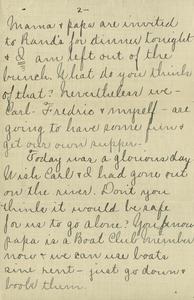 - 2 -
Mama & papa are invited
to Rand's for dinner tonight
& I am left out of the
bunch. What do you think
of that? Nevertheless we -
Carl - Fredric & myself - are
going to have some fun &
get our own supper -
Today was a glorious day
Wish Carl & I had gone out
on the river. Don't you
think it would be safe
for us to go alone? You know
papa is a Boat Club member
now & we can use boats
sine rent - just go down &
book them.